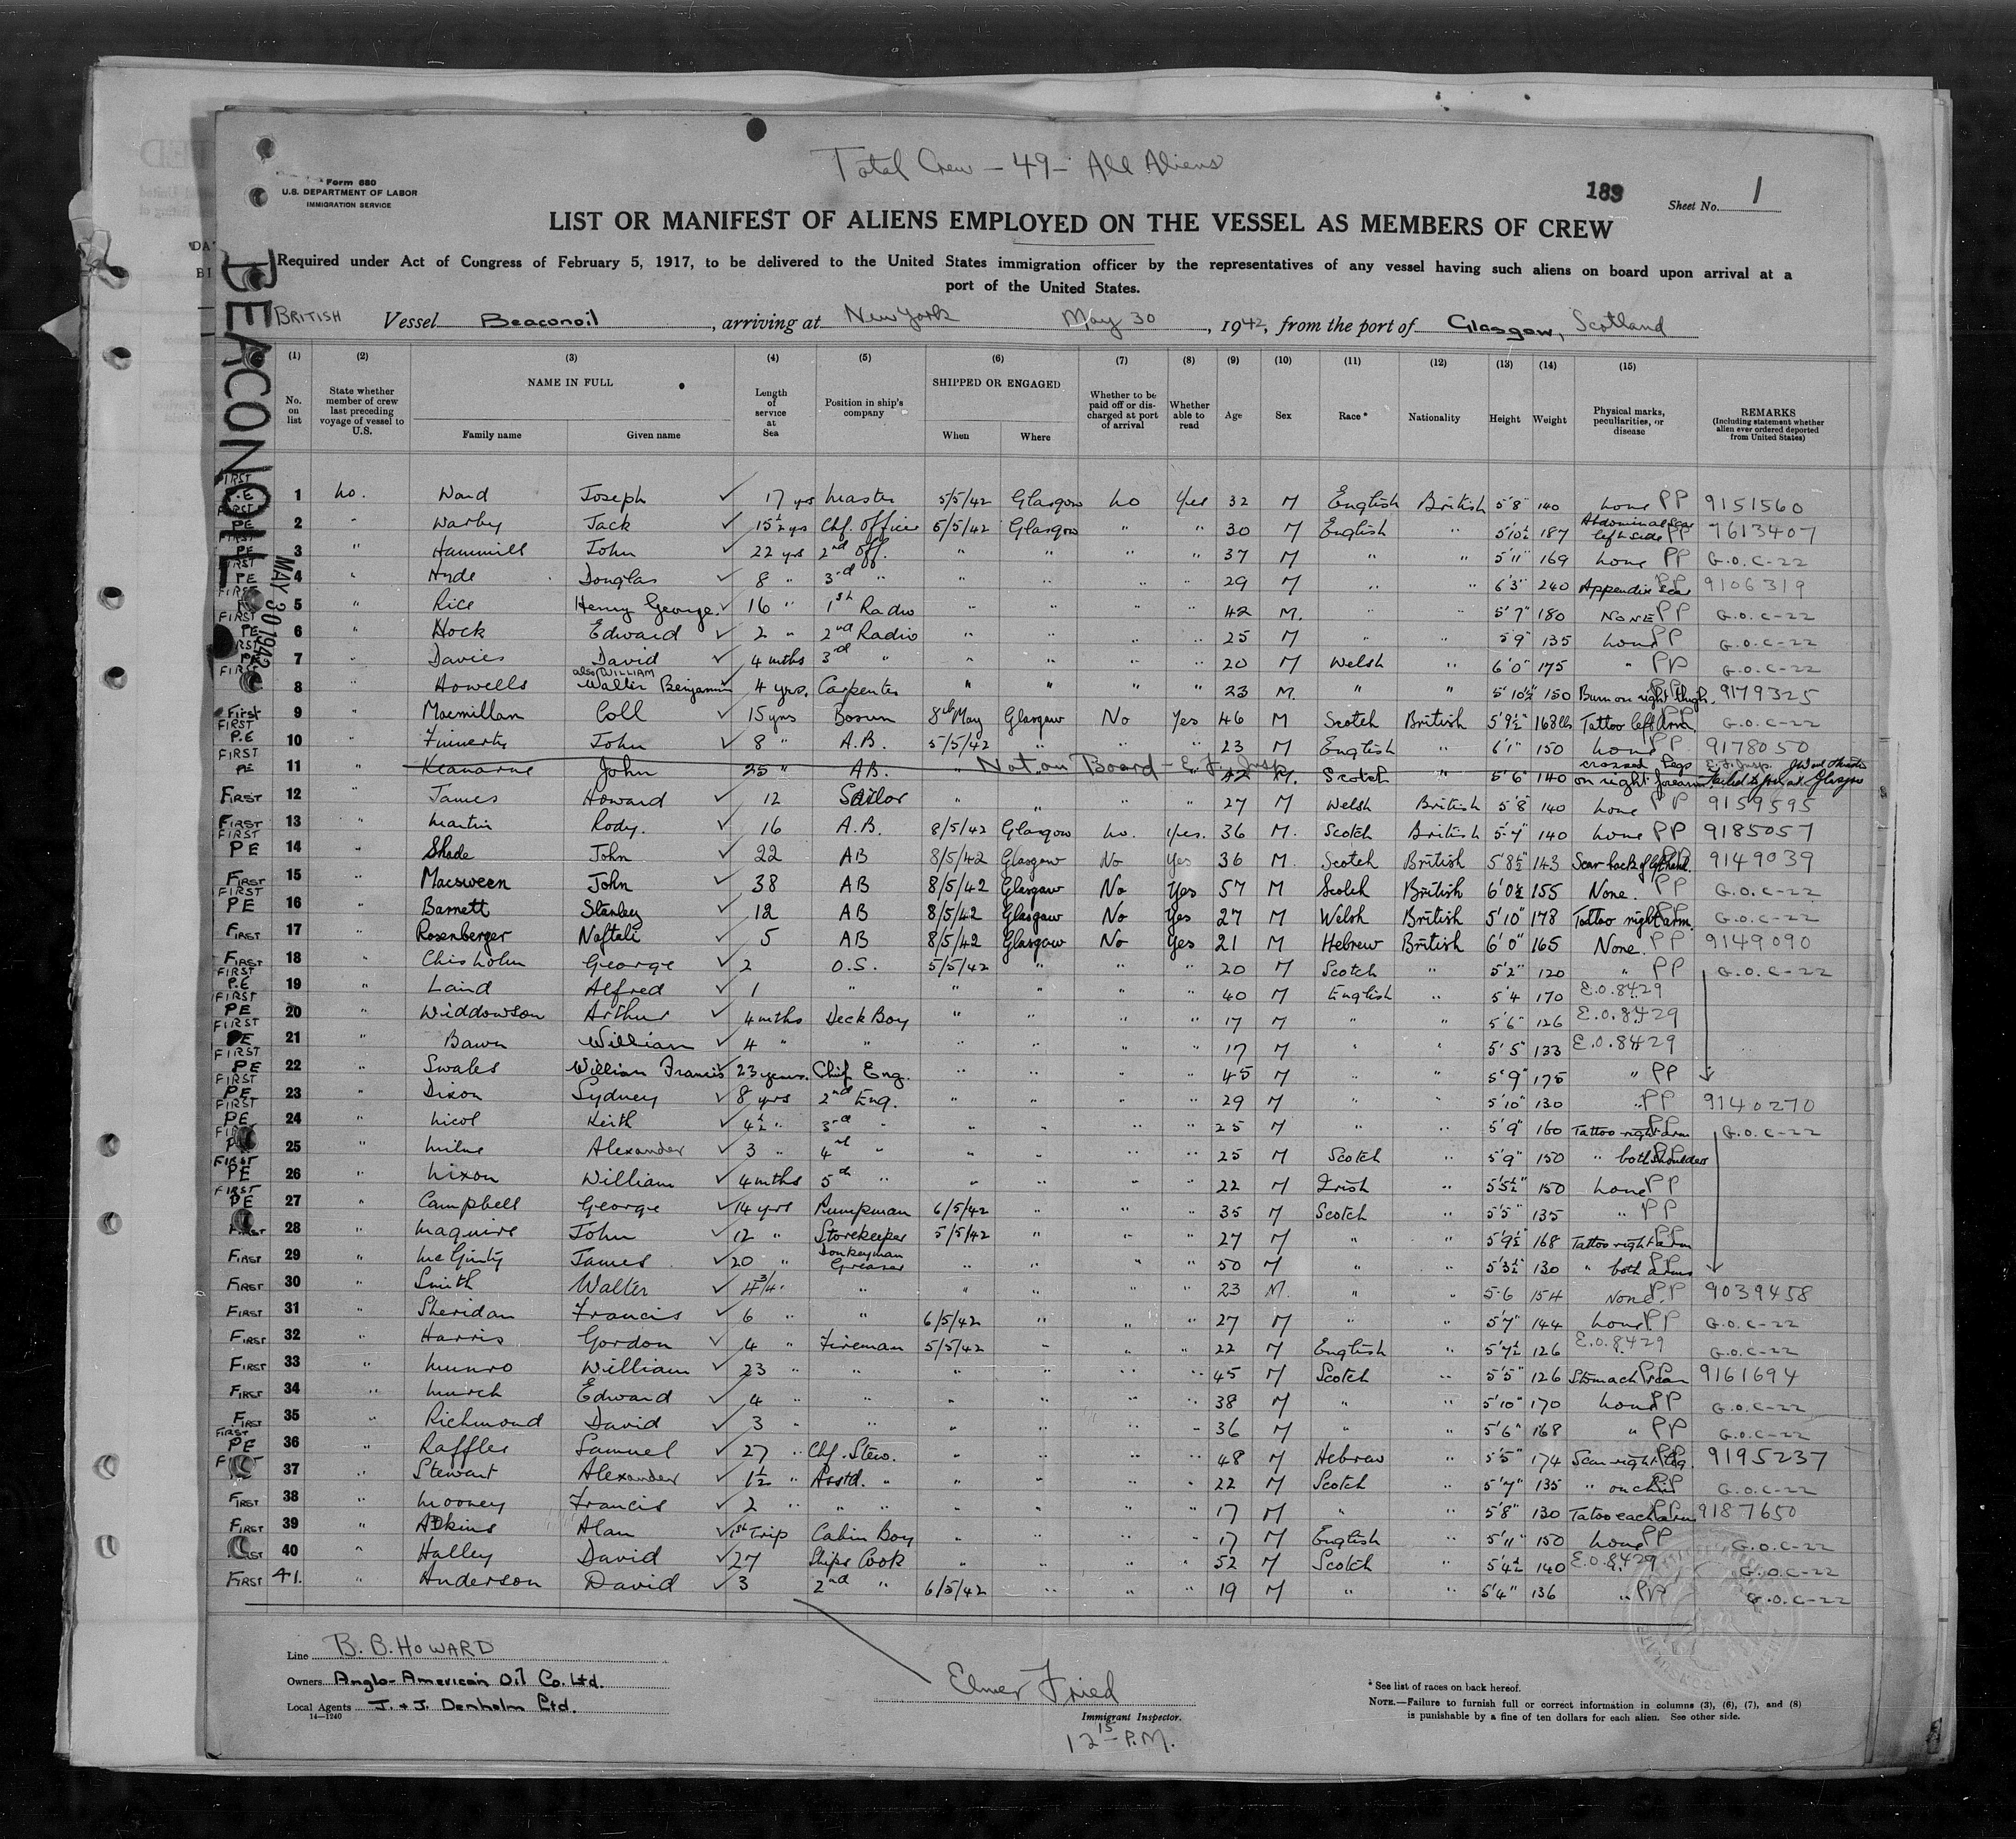 Total Crew - 49 - All Aliens
Form 680
U.S. DEPARTMENT OF LABOR
IMMIGRATION SERVICE
189
Sheet No. 1
LIST OR MANIFEST OF ALIENS EMPLOYED ON THE VESSEL AS MEMBERS OF CREW
Required under Act of Congress of February 5, 1917, to be delivered to the United States immigration officer by the representatives of any vessel having such aliens on board upon arrival at a
port of the United States.
BRITISH Vessel Beaconoil, arriving at New York May 30, 1942, from the port of Glasgow, Scotland
BEACONOIL
MAY 30 1942
(1) (2) (3) (4) (5) (6) (7) (8) (9) (10) (11) (12) (13) (14) (15)
No. on list
State whether member of crew last preceding voyage of vessel to U.S.
NAME IN FULL
Family name
Given name
Length of service at Sea
Position in ship's company
SHIPPED OR ENGAGED
When
Where
Whether to be paid off or discharged at port of arrival
Whether able to read
Age
Sex
Race*
Nationality
Height
Weight
Physical marks, peculiarities, or disease
REMARKS
(Including statement whether alien ever ordered deported from United States)
FIRST P.E 1 No. Ward Joseph ✓ 17 yrs Master 5/5/42 Glasgow No Yes 32 M English British 5'8" 140 None PP 9151560
FIRST PE 2 " Warby Jack ✓ 15½ yrs Chf. Officer 5/5/42 Glasgow " " 30 M English " 5'10½ 187 Abdominal Scar left side PP 7613407
FIRST PE 3 " Hammill John ✓ 22 yrs 2nd Off. " " " " 37 M " " 5'11" 169 None PP G.O.C-22
FIRST PE 4 " Hyde Douglas ✓ 8 " 3rd " " " " " 29 M " " 6'3" 240 Appendix Scar PP 9106319
FIRST 5 " Rice Henry George ✓ 16 " 1st Radio " " " " 42 M. " " 5'7" 180 NONE PP G.O.C-22
FIRST PE 6 " Hock Edward ✓ 2 " 2nd Radio " " " " 25 M " " 5'9" 135 None PP G.O.C-22
FIRST PE 7 " Davies David ✓ 4 mths 3rd " " " " " 20 M Welsh " 6'0" 175 " PP G.O.C-22
FIRST 8 " Howells also WILLIAM Walter Benjamin ✓ 4 yrs. Carpenter " " " " 23 M. " " 5'10½" 150 Burn on right thigh. PP 9179325
First 9 " Macmillan Coll ✓ 15 yrs Bosun 8th May Glasgow No Yes 46 M Scotch British 5'9½" 168 lbs Tattoo left Arm. PP G.O.C-22
FIRST P.E 10 " Finnerty John ✓ 8 " A.B. 5/5/42 " " " 23 M English " 6'1" 150 None PP 9178050
FIRST PE 11 " John 25 " AB. " Not on Board - 42 M. Scotch " 5'6" 140 crossed flags on right forearm. Failed to join at Glasgow
FIRST 12 " James Howard ✓ 12 Sailor " " " " 27 M Welsh British 5'8" 140 None PP 9159595
FIRST 13 " Martin Rody. ✓ 16 A.B. 8/5/42 Glasgow No. Yes. 36 M. Scotch British 5'7" 140 None PP 9185057
FIRST PE 14 " Shade John ✓ 22 AB 8/5/42 Glasgow No Yes 36 M. Scotch British 5'8½" 143 Scar back of left hand. PP 9149039
FIRST 15 " Macsween John ✓ 38 AB 8/5/42 Glasgow No Yes 57 M Scotch British 6'0½ 155 None. PP G.O.C-22
FIRST PE 16 " Barnett Stanley ✓ 12 AB 8/5/42 Glasgow No Yes 27 M Welsh British 5'10" 178 Tattoo right arm. PP G.O.C-22
FIRST 17 " Rosenberger Naftali ✓ 5 AB 8/5/42 Glasgow No Yes 21 M Hebrew British 6'0" 165 None. PP 9149090
FIRST 18 " Chisholm George ✓ 2 O.S. 5/5/42 " " " 20 M Scotch " 5'2" 120 " PP G.O.C-22
FIRST P.E 19 " Laird Alfred ✓ 1 " " " " " 40 M English " 5'4 170 E.O.8429
FIRST PE 20 " Widdowson Arthur ✓ 4 mths Deck Boy " " " " 17 M " " 5'6" 126 E.O.8429
FIRST PE 21 " William ✓ 4 " " " " " " 17 M " " 5'5" 133 E.O.8429
FIRST PE 22 " Swales William Francis ✓ 23 years. Chif Eng. " " " " 45 M " " 5'9" 175 " PP
FIRST PE 23 " Dixon Sydney ✓ 8 yrs 2nd Eng. " " " " 29 M " " 5'10" 130 " PP 9140270
FIRST PE 24 " Nicol Keith ✓ 4½ " 3rd " " " " " 25 M " " 5'9" 160 Tattoo right arm PP G.O.C-22
FIRST PE 25 " Milne Alexander ✓ 3 " 4th " " " " " 25 M Scotch " 5'9" 150 " both shoulders PP
FIRST PE 26 " Nixon William ✓ 4 mths 5th " " " " " 22 M Irish " 5'5½" 150 None PP
FIRST PE 27 " Campbell George ✓ 14 yrs Pumpman 6/5/42 " " " 35 M Scotch " 5'5" 135 " PP
FIRST 28 " Maguire John ✓ 12 " Storekeeper 5/5/42 " " " 27 M " " 5'9½ 168 Tattoo right arm PP
FIRST 29 " McGinty James ✓ 20 " Donkeyman Greaser " " " " 50 M " " 5'3½ 130 " both arms PP
FIRST 30 " Smith Walter ✓ 4¾ " " " " " " 23 M. " " 5-6 154 None. PP 9039458
FIRST 31 " Sheridan Francis ✓ 6 " " 6/5/42 " " " 27 M " " 5'7" 144 None PP G.O.C-22
FIRST 32 " Harris Gordon ✓ 4 " Fireman 5/5/42 " " " 22 M English " 5'7½ 126 E.O.8429 G.O.C-22
FIRST 33 " Munro William ✓ 23 " " " " " " 45 M Scotch " 5'5" 126 Stomach Scar PP 9161694
FIRST 34 " Murch Edward ✓ 4 " " " " " " 38 M " " 5'10" 170 None PP G.O.C-22
FIRST 35 " Richmond David ✓ 3 " " " " " " 36 M " " 5'6" 168 " PP G.O.C-22
FIRST PE 36 " Raffles Samuel ✓ 27 " Chf. Stew. " " " " 48 M Hebrew " 5'5" 174 Scar right leg. PP 9195237
FIRST 37 " Stewart Alexander ✓ 1½ " Asstd. " " " " " 22 M Scotch " 5'7" 135 " on chin PP G.O.C-22
FIRST 38 " Mooney Francis ✓ 2 " " " " " " " 17 M " " 5'8" 130 Tatoo each arm PP 9187650
FIRST 39 " Adkins Alan ✓ 1st Trip Cabin Boy " " " " 17 M English " 5'11" 150 None PP G.O.C-22
FIRST 40 " Halley David ✓ 27 Ships Cook " " " " 52 M Scotch " 5'4½ 140 E.O.8429 G.O.C-22
FIRST 41. " Anderson David ✓ 3 2nd " 6/5/42 " " " 19 M " " 5'4" 136 " PP G.O.C-22
Line B. B. HOWARD
Owners Anglo-American Oil Co. Ltd.
Local Agents J. & J. Denholm Ltd.
14—1240
Elmer Fried
Immigrant Inspector.
12 15 P.M.
* See list of races on back hereof.
NOTE.—Failure to furnish full or correct information in columns (3), (6), (7), and (8)
is punishable by a fine of ten dollars for each alien. See other side.